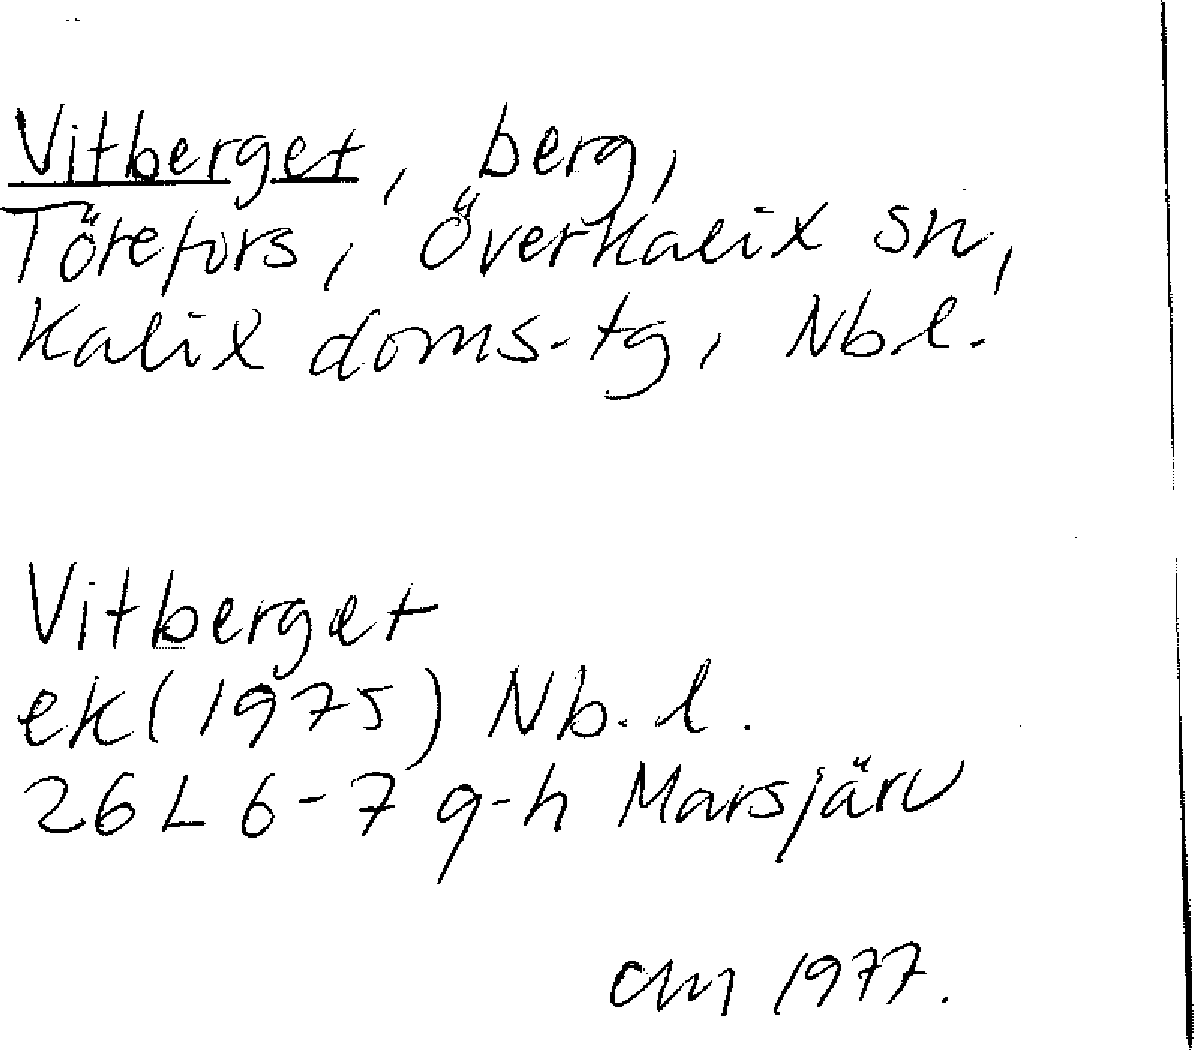 Vitberget, berg,
Törefors, Överkalix sn,
Kalix doms.tg, Nb.l.
Vitberget
ek (1975) Nb.l.
26 L 6-7 g-h Marsjärv
CM 1977.